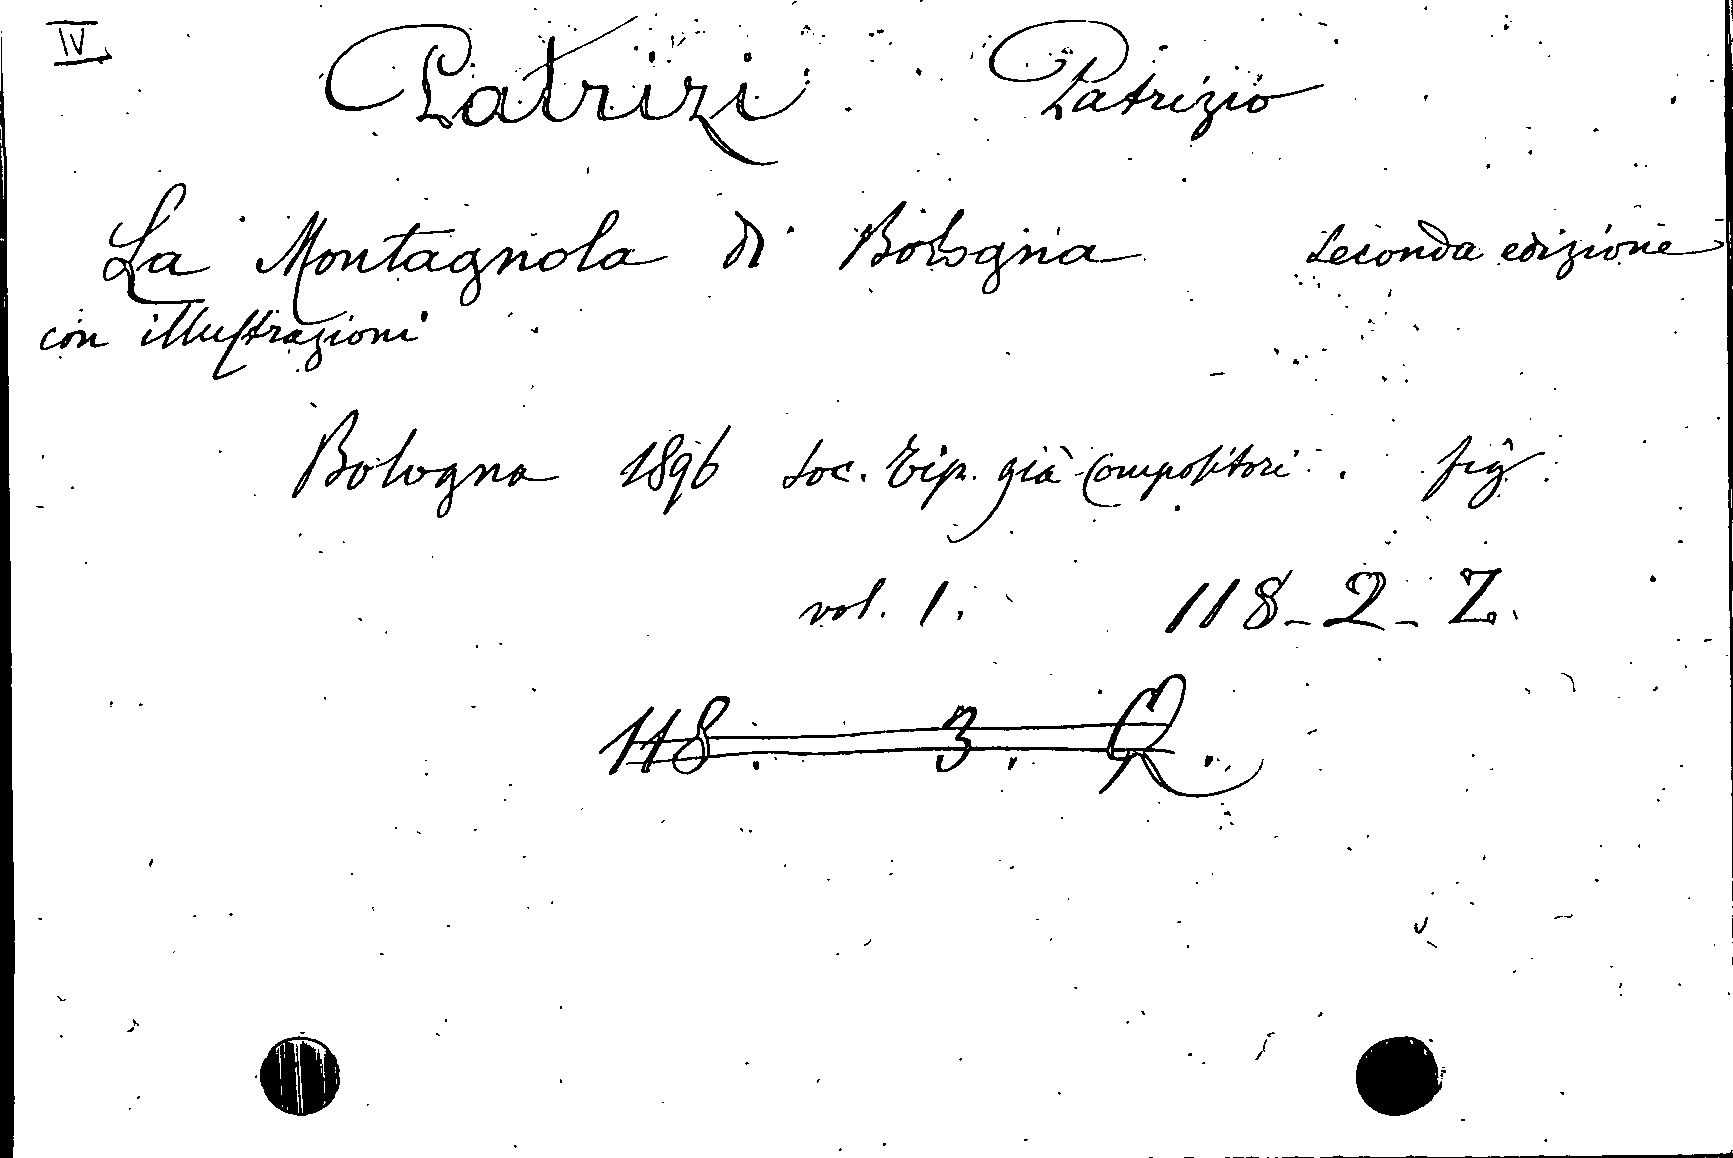 IV
Patrizi Patrizio
La Montagnola di Bologna seconda edizione
con illustrazioni
Bologna 1896 Soc. Tip. già Compositori. fig.
vol. 1. 118-2-Z.
118. 3. Q.